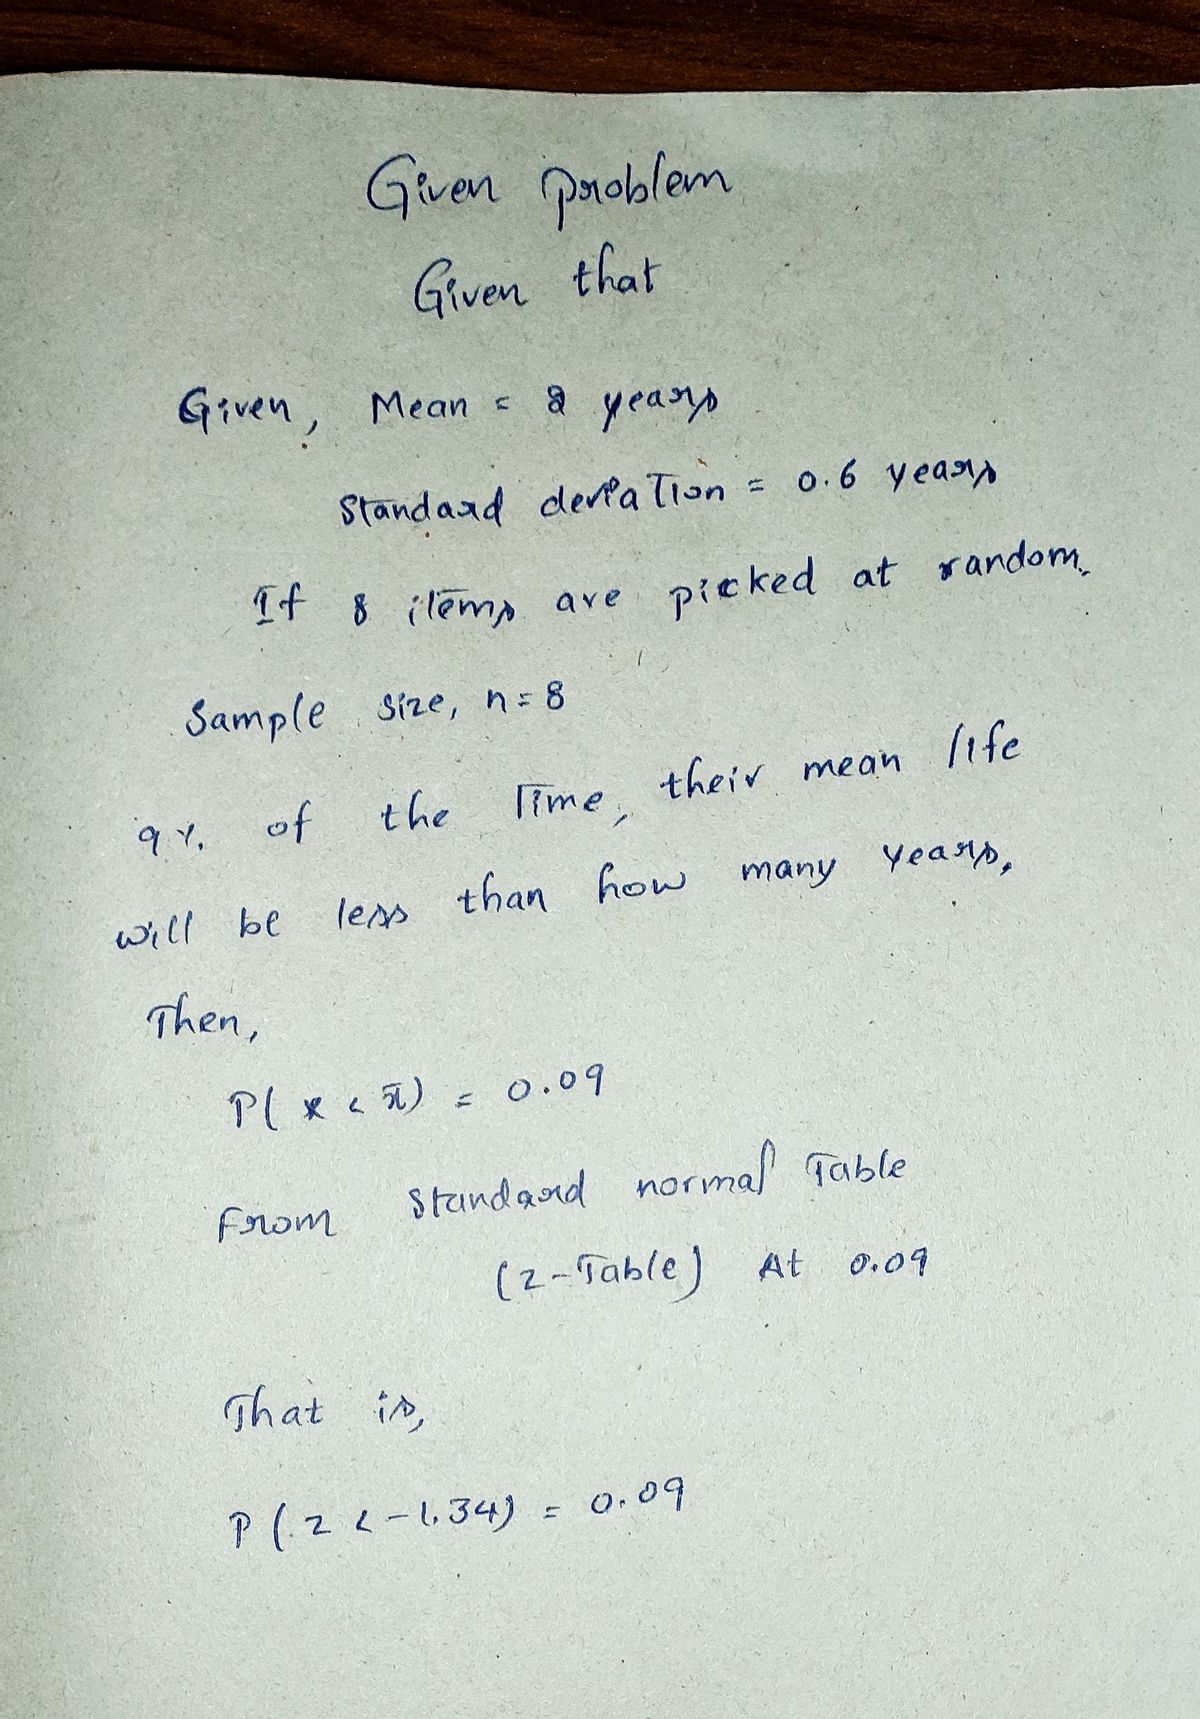 Given problem
Given that
Given, Mean = 2 years
Standard deviation = 0.6 years
If 8 items are picked at random.
Sample size, n=8
9%. of the Time, their mean life
will be less than how many years.
Then,
P(x < x̄) = 0.09
From Standard normal Table
(z-Table) At 0.09
That is,
P(z < -1.34) = 0.09